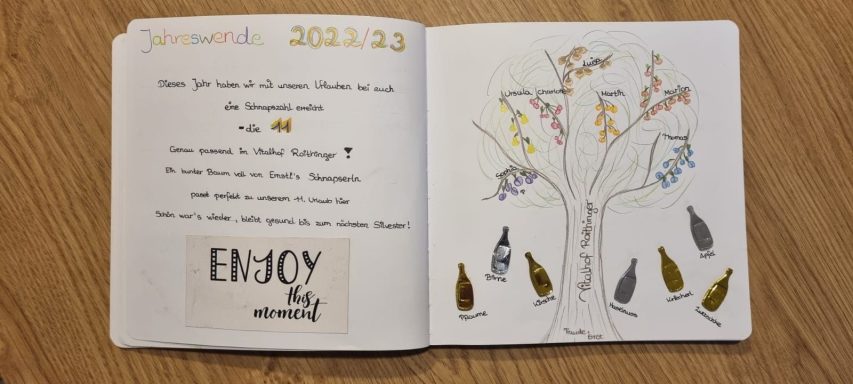 Jahreswende 2022/23
Dieses Jahr haben wir mit unseren Urlauben bei euch
eine Schnapszahl erreicht
- die 11
Genau passend im Vitalhof Raithinger !
Ein bunter Baum voll von Ernstl's Schnapserln
passt perfekt zu unserem 11. Urlaub hier
Schön war's wieder, bleibt gesund bis zum nächsten Silvester!
ENJOY
this
moment
Luisa
Ursula
Charlotte
Martin
Marion
Thomas
Sophia
Vitalhof Raithinger
Pflaume
Birne
Kirsche
Haselnuss
Kriecherl
Zwetschke
Apfel